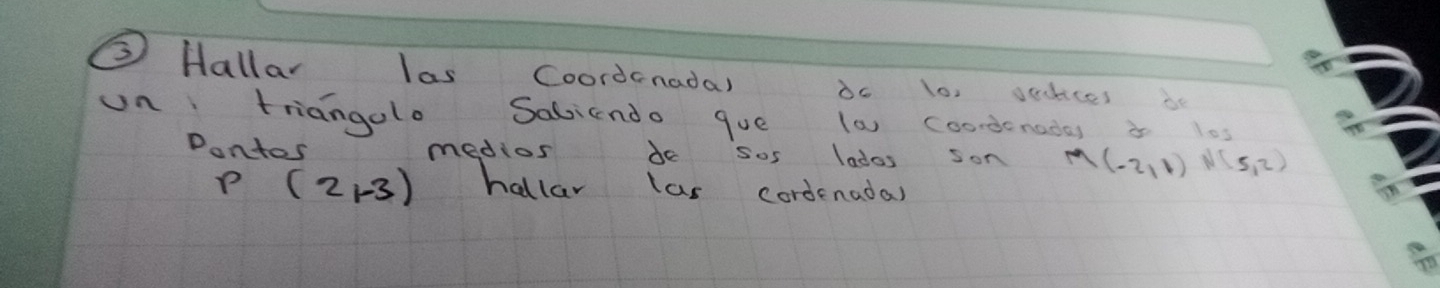 ③ Hallar las Coordenadas de los vertices de
un triángulo Sabiendo que las Coordenadas de los
Pontos medios de sus lados son M(-2,1) N(5,2)
P (2,-3) hallar las cordenadas